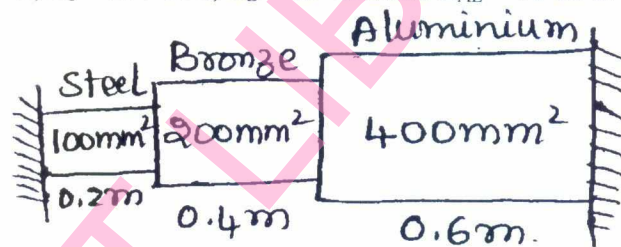 Steel Bronze Aluminium
100mm² 200mm² 400mm²
0.2m 0.4m 0.6m.